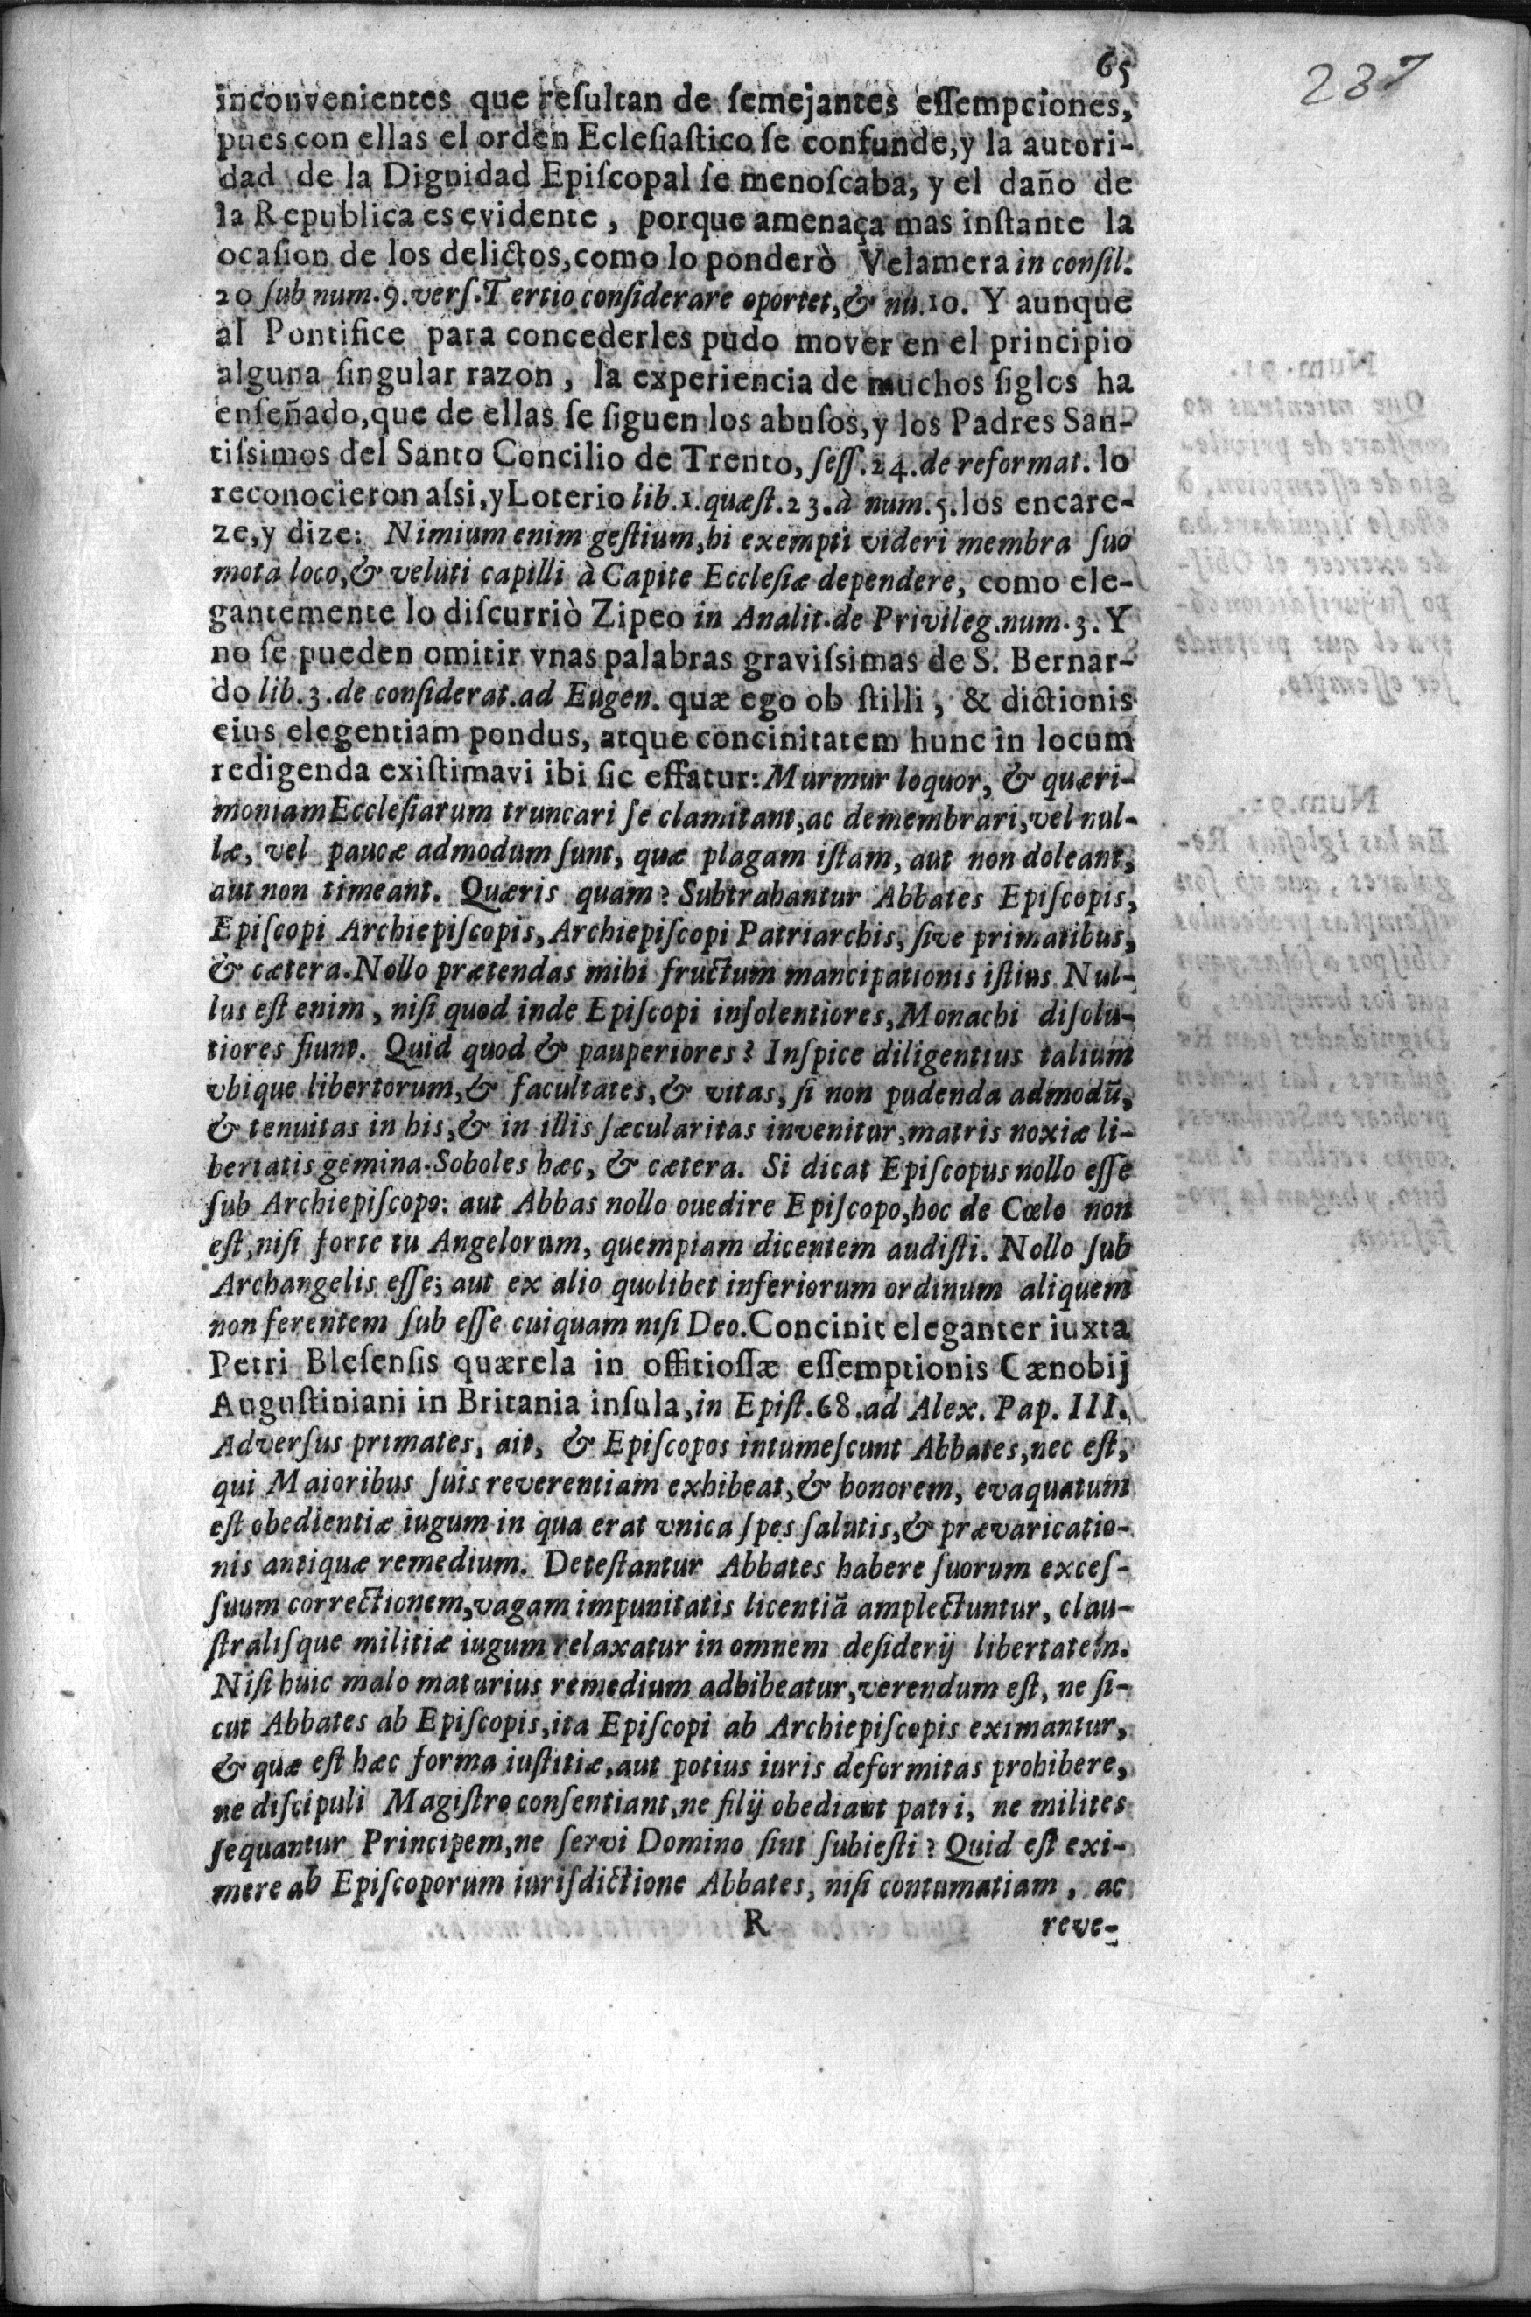 65
237
inconvenientes que reſultan de ſemejantes eſſempciones,
pues con ellas el orden Ecleſiaſtico ſe confunde, y la autori-
dad de la Dignidad Epiſcopal ſe menoſcaba, y el daño de
la Republica es evidente, porque amenaça mas inſtante la
ocaſion de los delictos, como lo ponderò Velamera in conſil.
20 ſub num. 9. verſ. Tertio conſiderare oportet, & nu. 10. Y aunque
al Pontifice para concederles pudo mover en el principio
alguna ſingular razon, la experiencia de muchos ſiglos ha
enſeñado, que de ellas ſe ſiguen los abuſos, y los Padres San-
tiſsimos del Santo Concilio de Trento, ſeſſ. 24. de reformat. lo
reconocieron aſsi, y Loterio lib. 1. quæſt. 23. à num. 5. los encare-
ze, y dize: Nimium enim geſtium, hi exempti videri membra ſuo
mota loco, & veluti capilli à Capite Eccleſiæ dependere, como ele-
gantemente lo diſcurriò Zipeo in Analit. de Privileg. num. 3. Y
no ſe pueden omitir vnas palabras graviſsimas de S. Bernar-
do lib. 3. de conſiderat. ad Eugen. quæ ego ob ſtilli, & dictionis
eius elegentiam pondus, atque concinitatem hunc in locum
redigenda exiſtimavi ibi ſic effatur: Murmur loquor, & quæri-
moniam Eccleſiarum truncari ſe clamitant, ac demembrari, vel nul-
læ, vel paucæ admodum ſunt, quæ plagam iſtam, aut non doleant,
aut non timeant. Quæris quam? Subtrahantur Abbates Epiſcopis,
Epiſcopi Archiepiſcopis, Archiepiſcopi Patriarchis, ſive primatibus,
& cætera. Nollo prætendas mihi fructum mancipationis iſtius. Nul-
lus eſt enim, niſi quod inde Epiſcopi inſolentiores, Monachi diſolu-
tiores fiunt. Quid quod & pauperiores? Inſpice diligentius talium
vbique libertorum, & facultates, & vitas, ſi non pudenda admodũ,
& tenuitas in his, & in illis ſæcularitas invenitur, matris noxiæ li-
bertatis gemina. Soboles hæc, & cætera. Si dicat Epiſcopus nollo eſſe
ſub Archiepiſcopo: aut Abbas nollo ovedire Epiſcopo, hoc de Cœlo non
eſt, niſi forte tu Angelorum, quempiam dicentem audiſti. Nollo ſub
Archangelis eſſe; aut ex alio quolibet inferiorum ordinum aliquem
non ferentem ſub eſſe cuiquam niſi Deo. Concinit eleganter iuxta
Petri Bleſenſis quærela in offitioſſæ eſſemptionis Cænobij
Auguſtiniani in Britania inſula, in Epiſt. 68. ad Alex. Pap. III.
Adverſus primates, ait, & Epiſcopos intumeſcunt Abbates, nec eſt,
qui Maioribus ſuis reverentiam exhibeat, & honorem, evaquatum
eſt obedientiæ iugum in qua erat vnica ſpes ſalutis, & prævaricatio-
nis antiquæ remedium. Deteſtantur Abbates habere ſuorum exceſ-
ſuum correctionem, vagam impunitatis licentiã amplectuntur, clau-
ſtraliſque militiæ iugum relaxatur in omnem deſiderij libertatem.
Niſi huic malo maturius remedium adhibeatur, verendum eſt, ne ſi-
cut Abbates ab Epiſcopis, ita Epiſcopi ab Archiepiſcopis eximantur,
& quæ eſt hæc forma iuſtitiæ, aut potius iuris deformitas prohibere,
ne diſcipuli Magiſtro conſentiant, ne filij obediant patri, ne milites
ſequantur Principem, ne ſervi Domino ſint ſubieſti? Quid eſt exi-
mere ab Epiſcoporum iurisdictione Abbates, niſi contumatiam, ac
R reve-